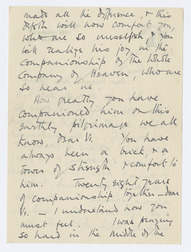 made all the difference, & this
depth will now comfort you
who are so unselfish, & you
will realize his joy in the
Companionship of the Whole
Company of Heaven, who are
so near us.
How greatly you have
companioned him on this
earthly pilgrimage we all
know, dear V. You have
always been a brick & a
tower of strength & comfort to
him. Twenty eight years
of companionship together - dear
V. - I understand how you
must feel. I was praying
so hard in the middle of the